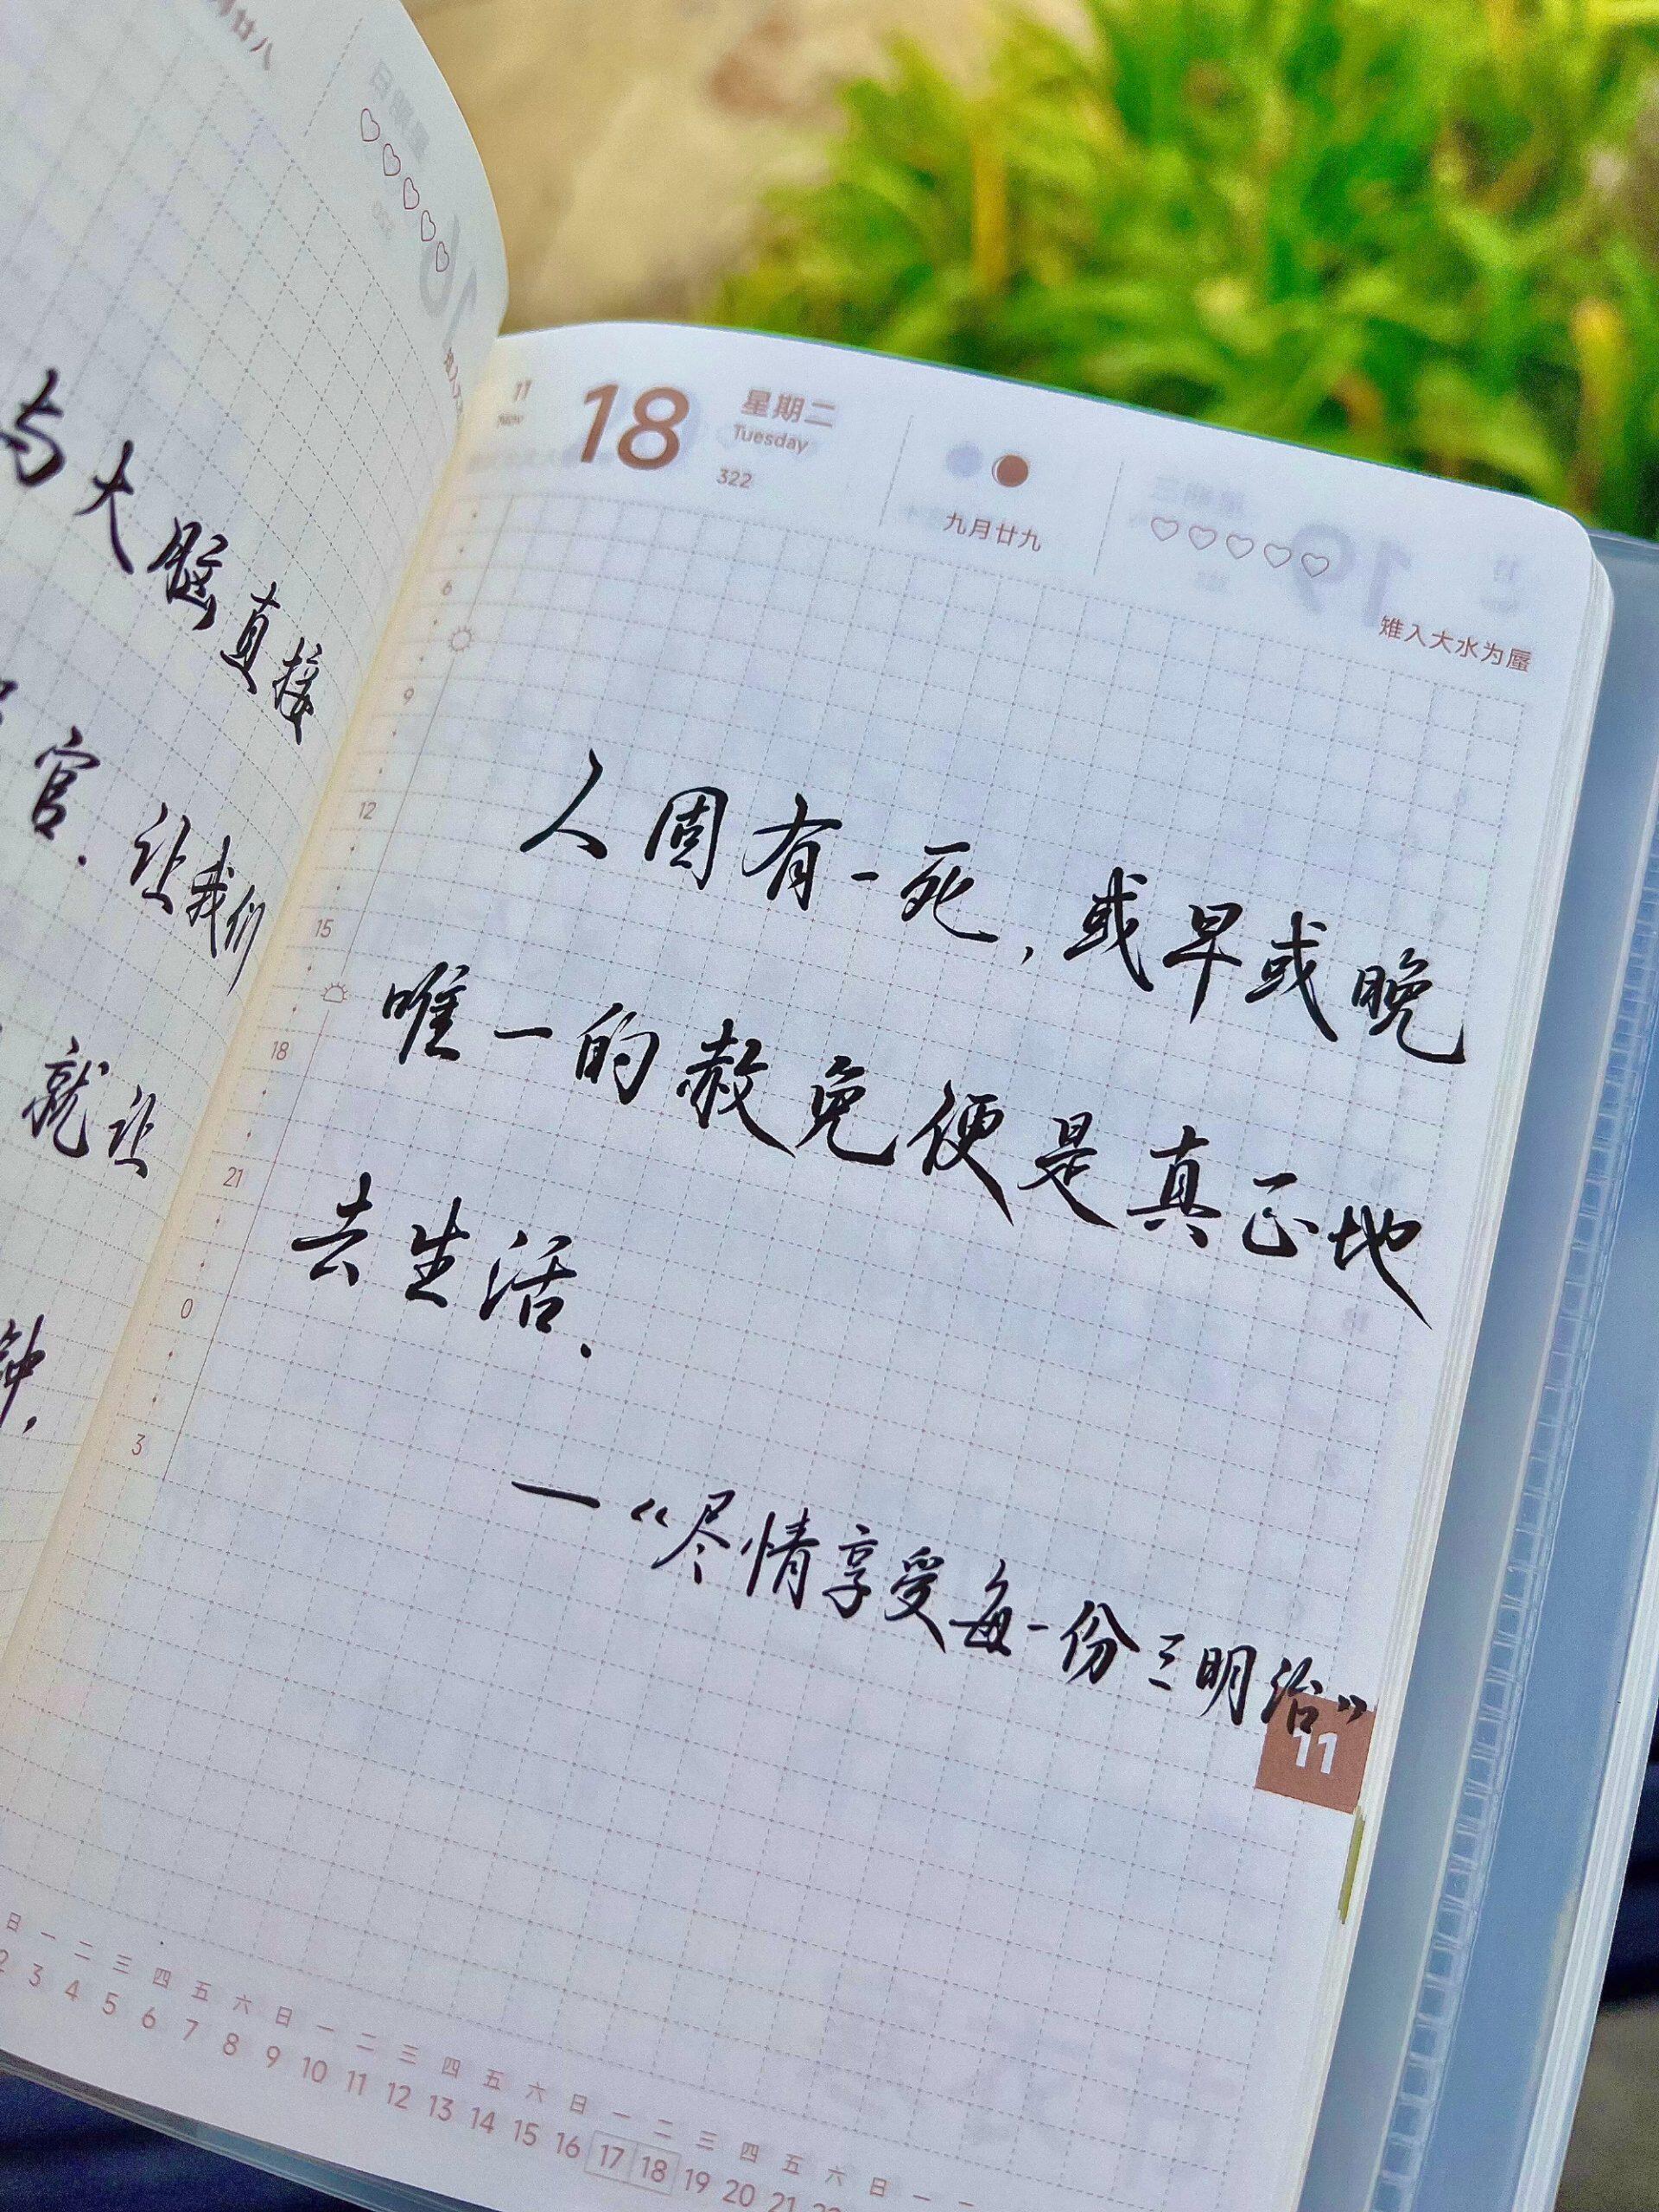 与大脑直接
官.让我们
就让
钟,
11
Nov
18
星期二
Tuesday
322
九月廿九
雉入大水为蜃
6
9
12
15
18
21
0
3
人固有一死,或早或晚
唯一的赦免便是真正地
去生活.
—“尽情享受每一份三明治”
11
日 一 二 三 四 五 六 日 一 二 三 四 五 六 日 一 二 三 四 五 六 日 一
2 3 4 5 6 7 8 9 10 11 12 13 14 15 16 17 18 19 20 21 22